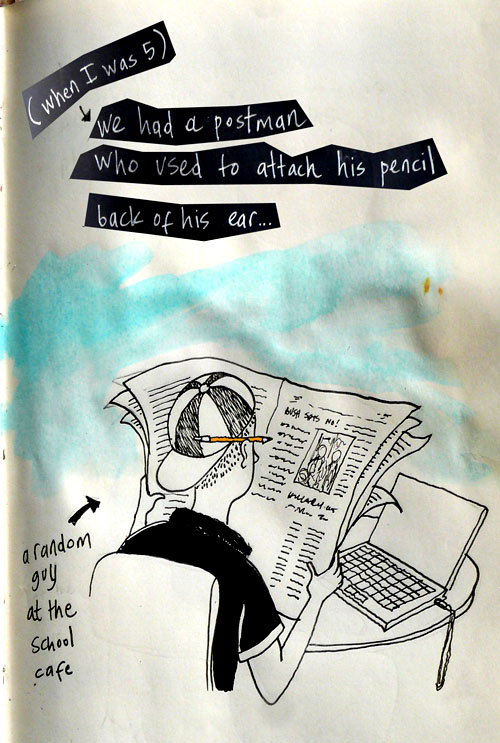 (when I was 5)
we had a postman
who used to attach his pencil
back of his ear...
BUSH SAYS NO!
a random
guy
at the
school
cafe